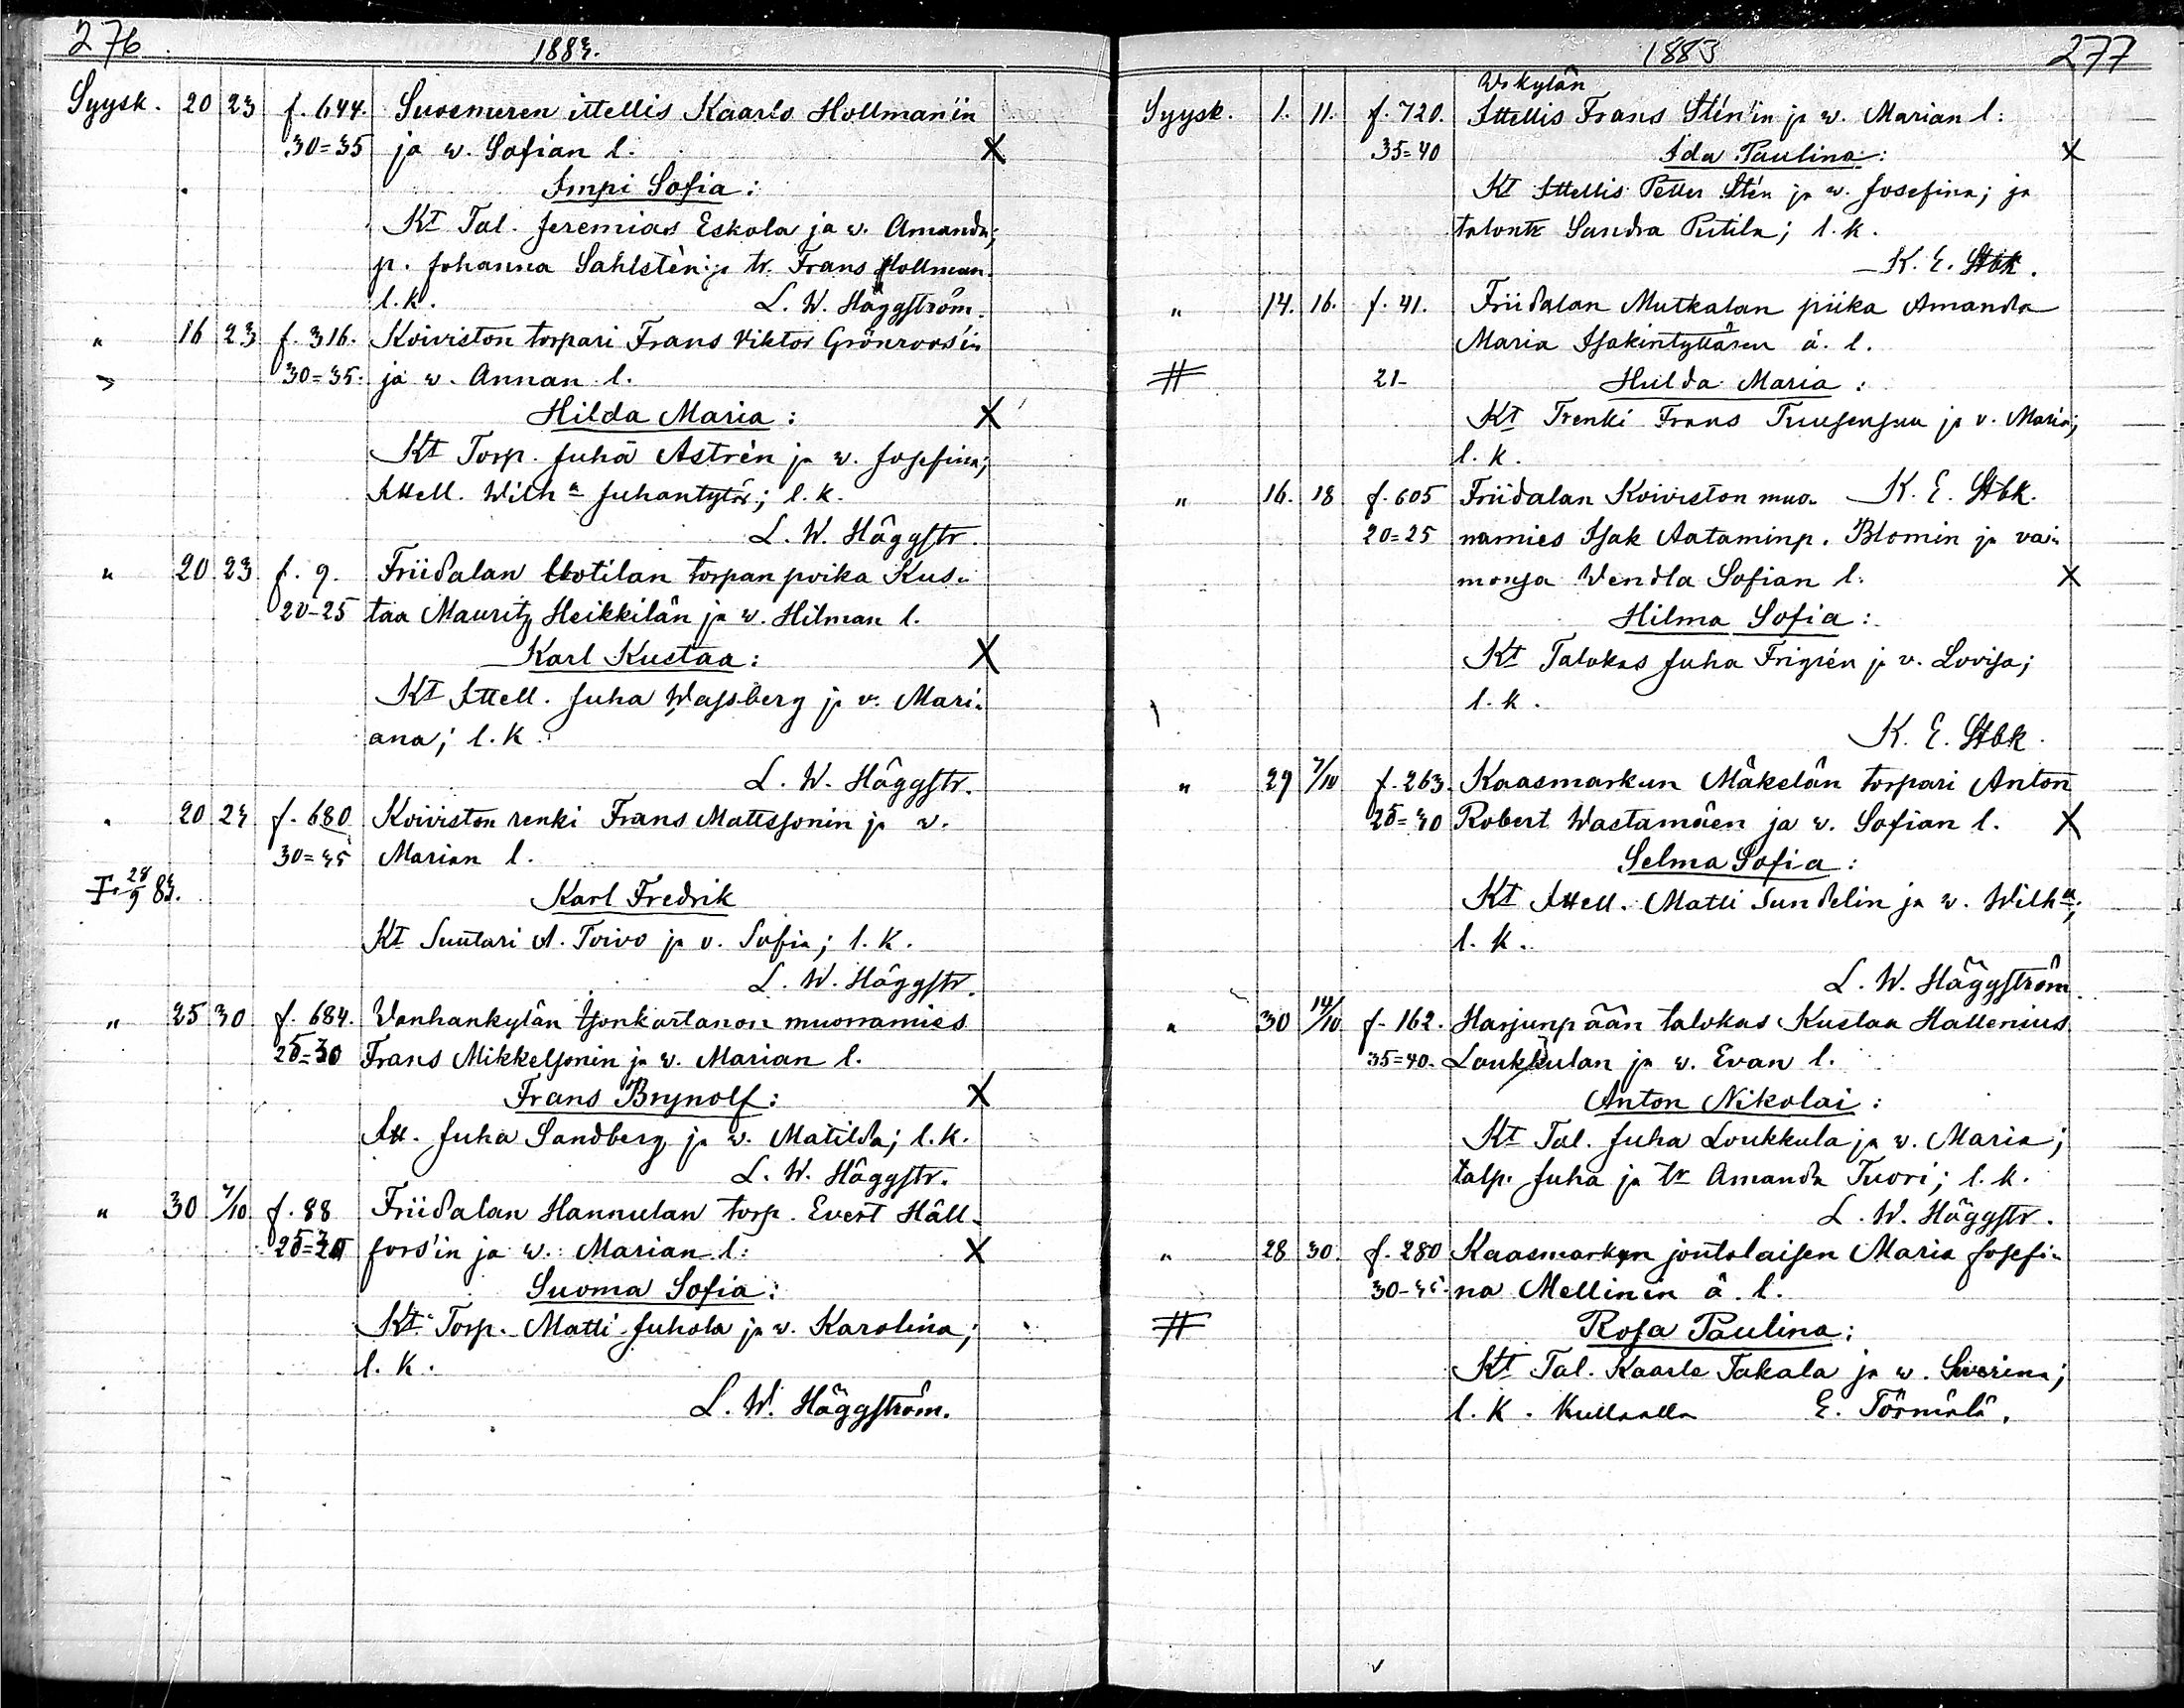 276.
1883.
Syysk. 20 23 f. 644. Suosmeren ittellis Kaarlo Hollman'in
30=35 ja w. Sofian l. X
Impi Sofia:
Kt Tal. Jeremias Eskola ja w. Amanda;
p. Johanna Sahlstèn ja tr. Frans Hollman.
l. k. L. W. Häggström.
" 16 23 f. 316. Koiviston torpari Frans Viktor Grönroos'in
30=35. ja w. Annan l.
Hilda Maria: X
Kt Torp. Juha Astrèn ja w. Josefina;
Ittell. Wilh:a Juhantytär; l. k.
L. W. Häggstr.
" 20 23 f. 9. Friidalan Uotilan torpan poika Kus-
20-25 taa Mauritz Heikkilän ja w. Hilman l.
Karl Kustaa: X
Kt Ittell. Juha Wassberg ja v. Mari-
ana; l. k.
L. W. Häggstr.
" 20 23 f. 680 Koiviston renki Frans Mattssonin ja w.
30=35 Marian l.
28/9 83. Karl Fredrik
Kt Suutari A. Toivo ja v. Sofia; l. k.
L. W. Häggstr.
" 25 30 f. 684. Vanhankylän Isonkartanon muonamies
25=30 Frans Mikkelsonin ja w. Marian l.
Frans Brynolf: X
Itt. Juha Sandberg ja w. Matilda; l. k.
L. W. Häggstr.
" 30 7/10 f. 88 Friidalan Hannulan torp. Evert Häll-
fors'in ja w. Marian l: X
Suoma Sofia:
Kt. Torp. Matti Juhola ja w. Karolina;
l. k.
L. W. Häggström.
1883
277
W:kylän
Syysk. 1. 11. f. 720. Ittellis Frans Stén'in ja w. Marian l:
35=40 Ida Paulina: X
Kt Ittellis Petter Stén ja w. Josefina; ja
talontr Sandra Putila; l. k.
K. E. Stbk.
" 14. 16. f. 41. Friidalan Mutkalan piika Amanda
Maria Isakintyttären ä. l.
# 21- Hulda Maria:
Kt Trenki Frans Truusensuu ja v. Maria;
l. k.
" 16. 18 f. 605 Friidalan Koiviston muo- K. E. Stbk.
20=25 namies Isak Aataminp. Blomin ja vai-
monsa Wendla Sofian l. X
Hilma Sofia:
Kt Talokas Juha Frigrén ja v. Lovisa;
l. k.
K. E. Stbk.
" 29 7/10 f. 263. Kaasmarkun Mäkelän torpari Anton
25=30 Robert Wastamäen ja w. Sofian l. X
Selma Sofia:
Kt Ittell. Matti Sundelin ja w. Wilh:a;
l. k.
L. W. Häggström.
" 30 14/10 f. 162. Harjunpään talokas Kustaa Hallenius
35=40. Loukkulan ja w. Evan l.
Anton Nikolai:
Kt Tal. Juha Loukkula ja w. Maria;
talp. Juha ja tr Amanda Tuori; l. k.
L. W. Häggstr.
" 28 30. f. 280 Kaasmarkun joutolaisen Maria Josefi-
30-35. na Mellinin ä. l.
# Rosa Paulina:
Kt Tal. Kaarle Takala ja w. Severina;
l. k. Kullaalla E. Törmälä.